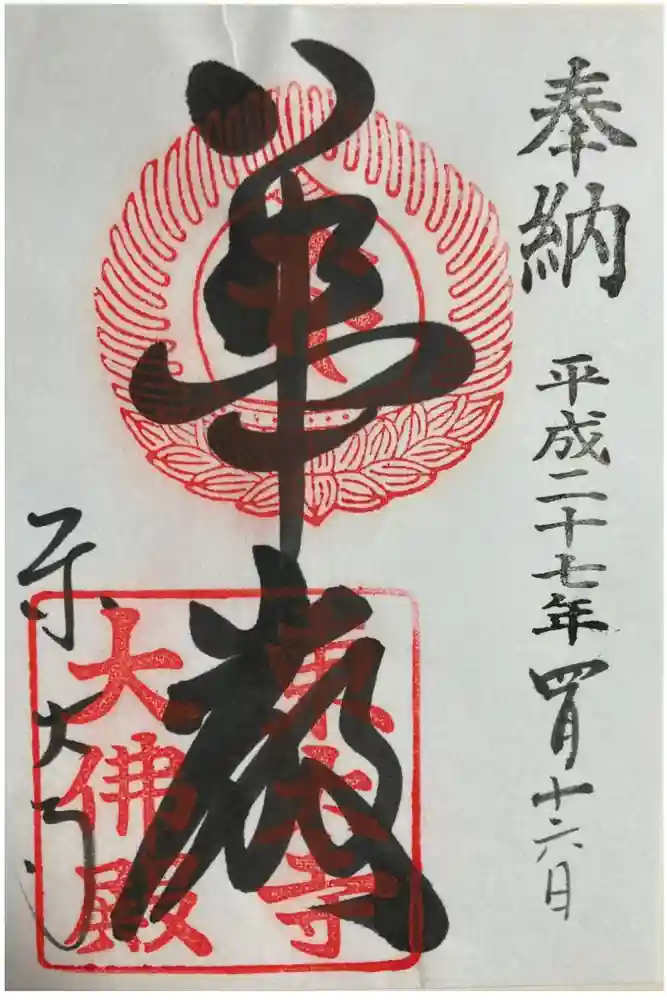 奉納
平成二十七年四月十六日
華厳
東大寺
大佛殿
东大寺